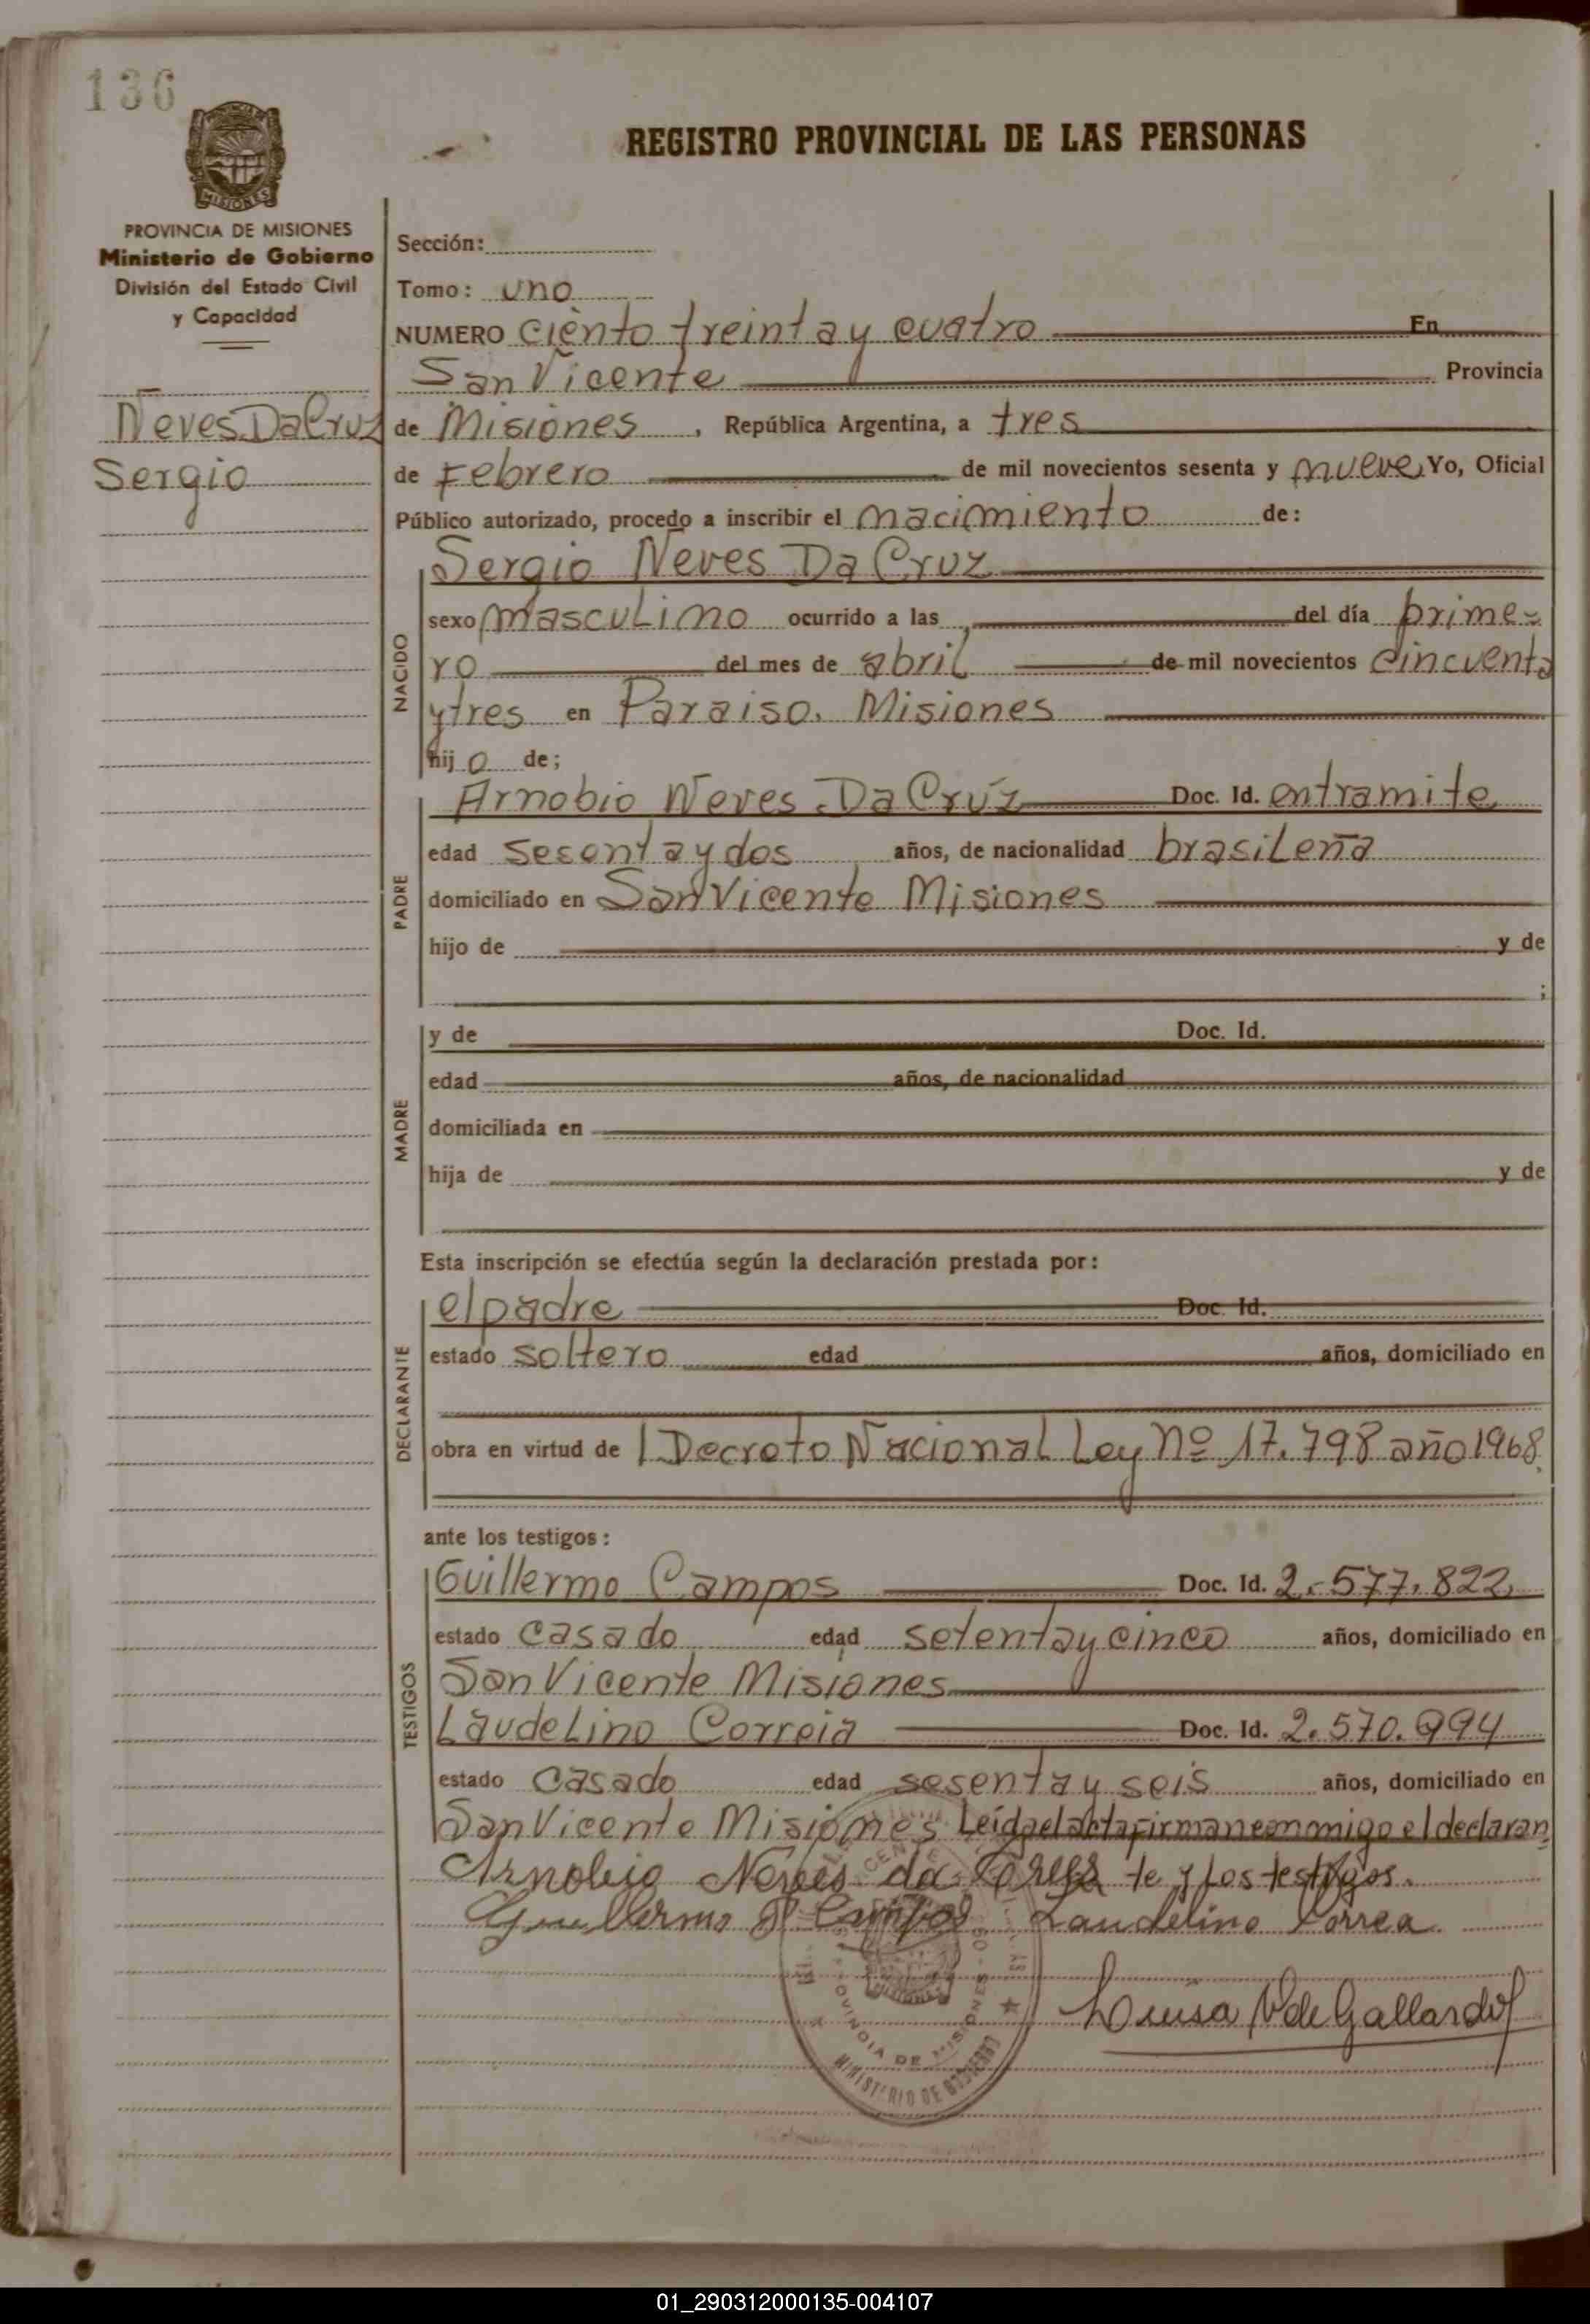 136
REGISTRO PROVINCIAL DE LAS PERSONAS
MISIONES
PROVINCIA DE MISIONES
Ministerio de Gobierno
División del Estado Civil
y Capacidad
Neves Da Cruz
Sergio
Sección:
Tomo: uno
NUMERO ciento treinta y cuatro En
San Vicente Provincia
de Misiones, República Argentina, a tres
de Febrero de mil novecientos sesenta y nueve, Yo, Oficial
Público autorizado, procedo a inscribir el nacimiento de:
NACIDO
Sergio Neves Da Cruz
sexo masculino ocurrido a las del día prime-
ro del mes de abril de mil novecientos cincuenta
y tres en Paraiso. Misiones
hijo de;
PADRE
Arnobio Neves Da Cruz Doc. Id. en tramite
edad sesenta y dos años, de nacionalidad brasileña
domiciliado en San Vicente Misiones
hijo de y de
;
MADRE
y de Doc. Id.
edad años, de nacionalidad
domiciliada en
hija de y de
Esta inscripción se efectúa según la declaración prestada por:
DECLARANTE
el padre Doc. Id.
estado soltero edad años, domiciliado en
obra en virtud de l Decreto Nacional Ley Nº 17.798 año 1968.
ante los testigos:
TESTIGOS
Guillermo Campos Doc. Id. 2.577.822
estado casado edad setenta y cinco años, domiciliado en
San Vicente Misiones
Laudelino Correia Doc. Id. 2.570.994
estado casado edad sesenta y seis años, domiciliado en
San Vicente Misiones Leída el acta firman conmigo el declaran
Arnobio Neves da te y los testigos.
Guillermo Campos Laudelino Correa
Luisa V de Gallardo
PROVINCIA DE MISIONES
MINISTERIO DE GOBIERNO
01_290312000135-004107